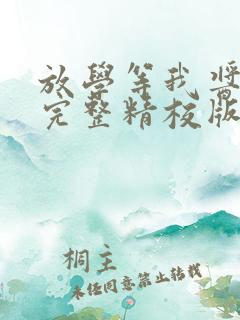 放學等我 醬
完整精校版
桐主
未任同意禁止转载